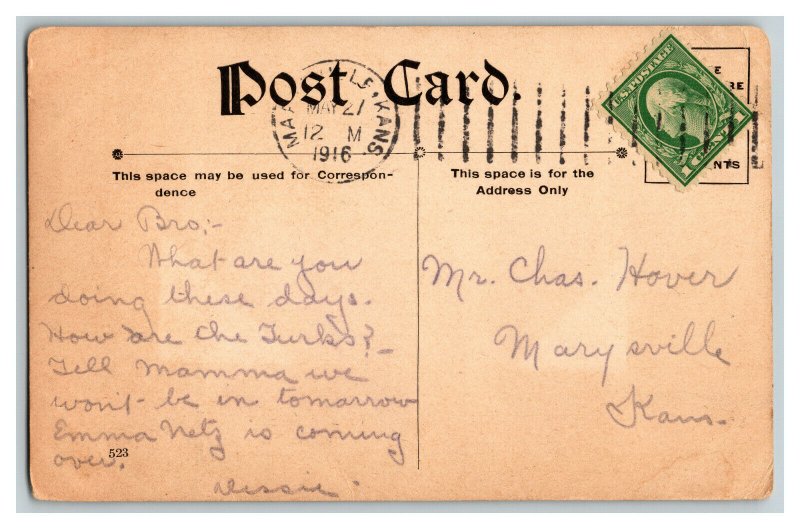 Post Card.
MAY 27
12 M
1916
KANS
U.S. POSTAGE
1 CENT 1
This space may be used for Correspon-
dence
This space is for the
Address Only
Dear Bro;-
What are you
doing these days.
How are the Turks?-
Tell Mamma we
won't be in tomorrow
Emma Netz is coming
over.
523
Mr. Chas. Hover
Marysville
Kans.